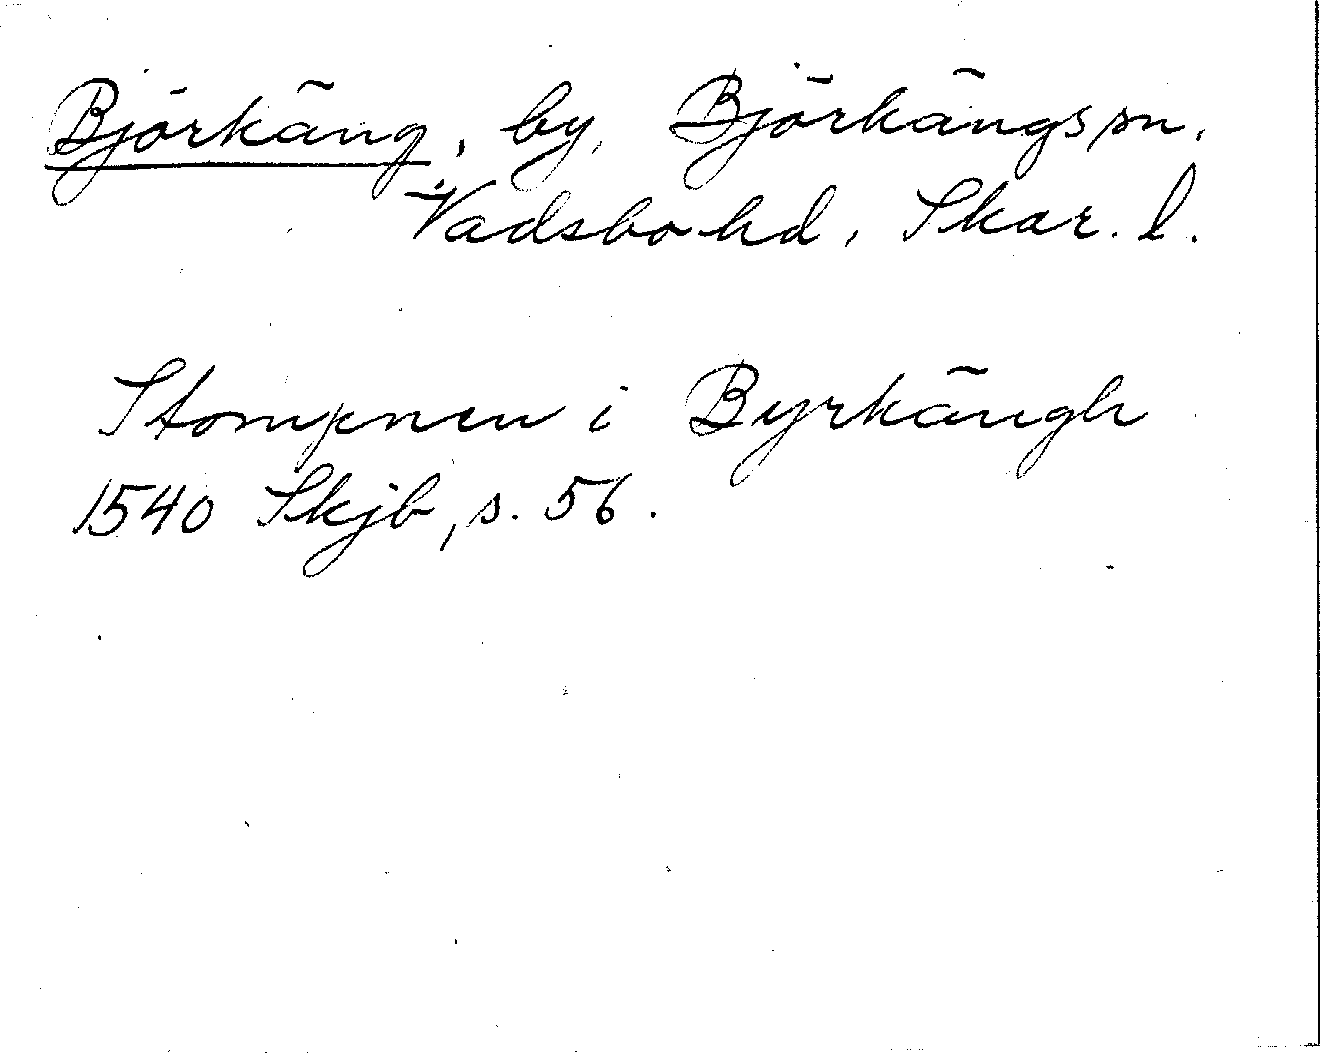 Björkäng, by, Björkängs sn,
Vadsbo hd, Skar. l.
Stompnen i Byrkängh
1540 Skjb, s. 56.